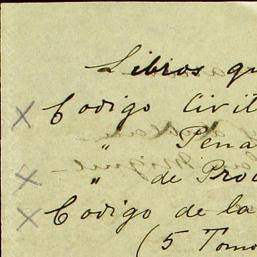 Libros qu
x Codigo Civil
" Pena
x " de Proc
x Codigo de la
(5 Tomo